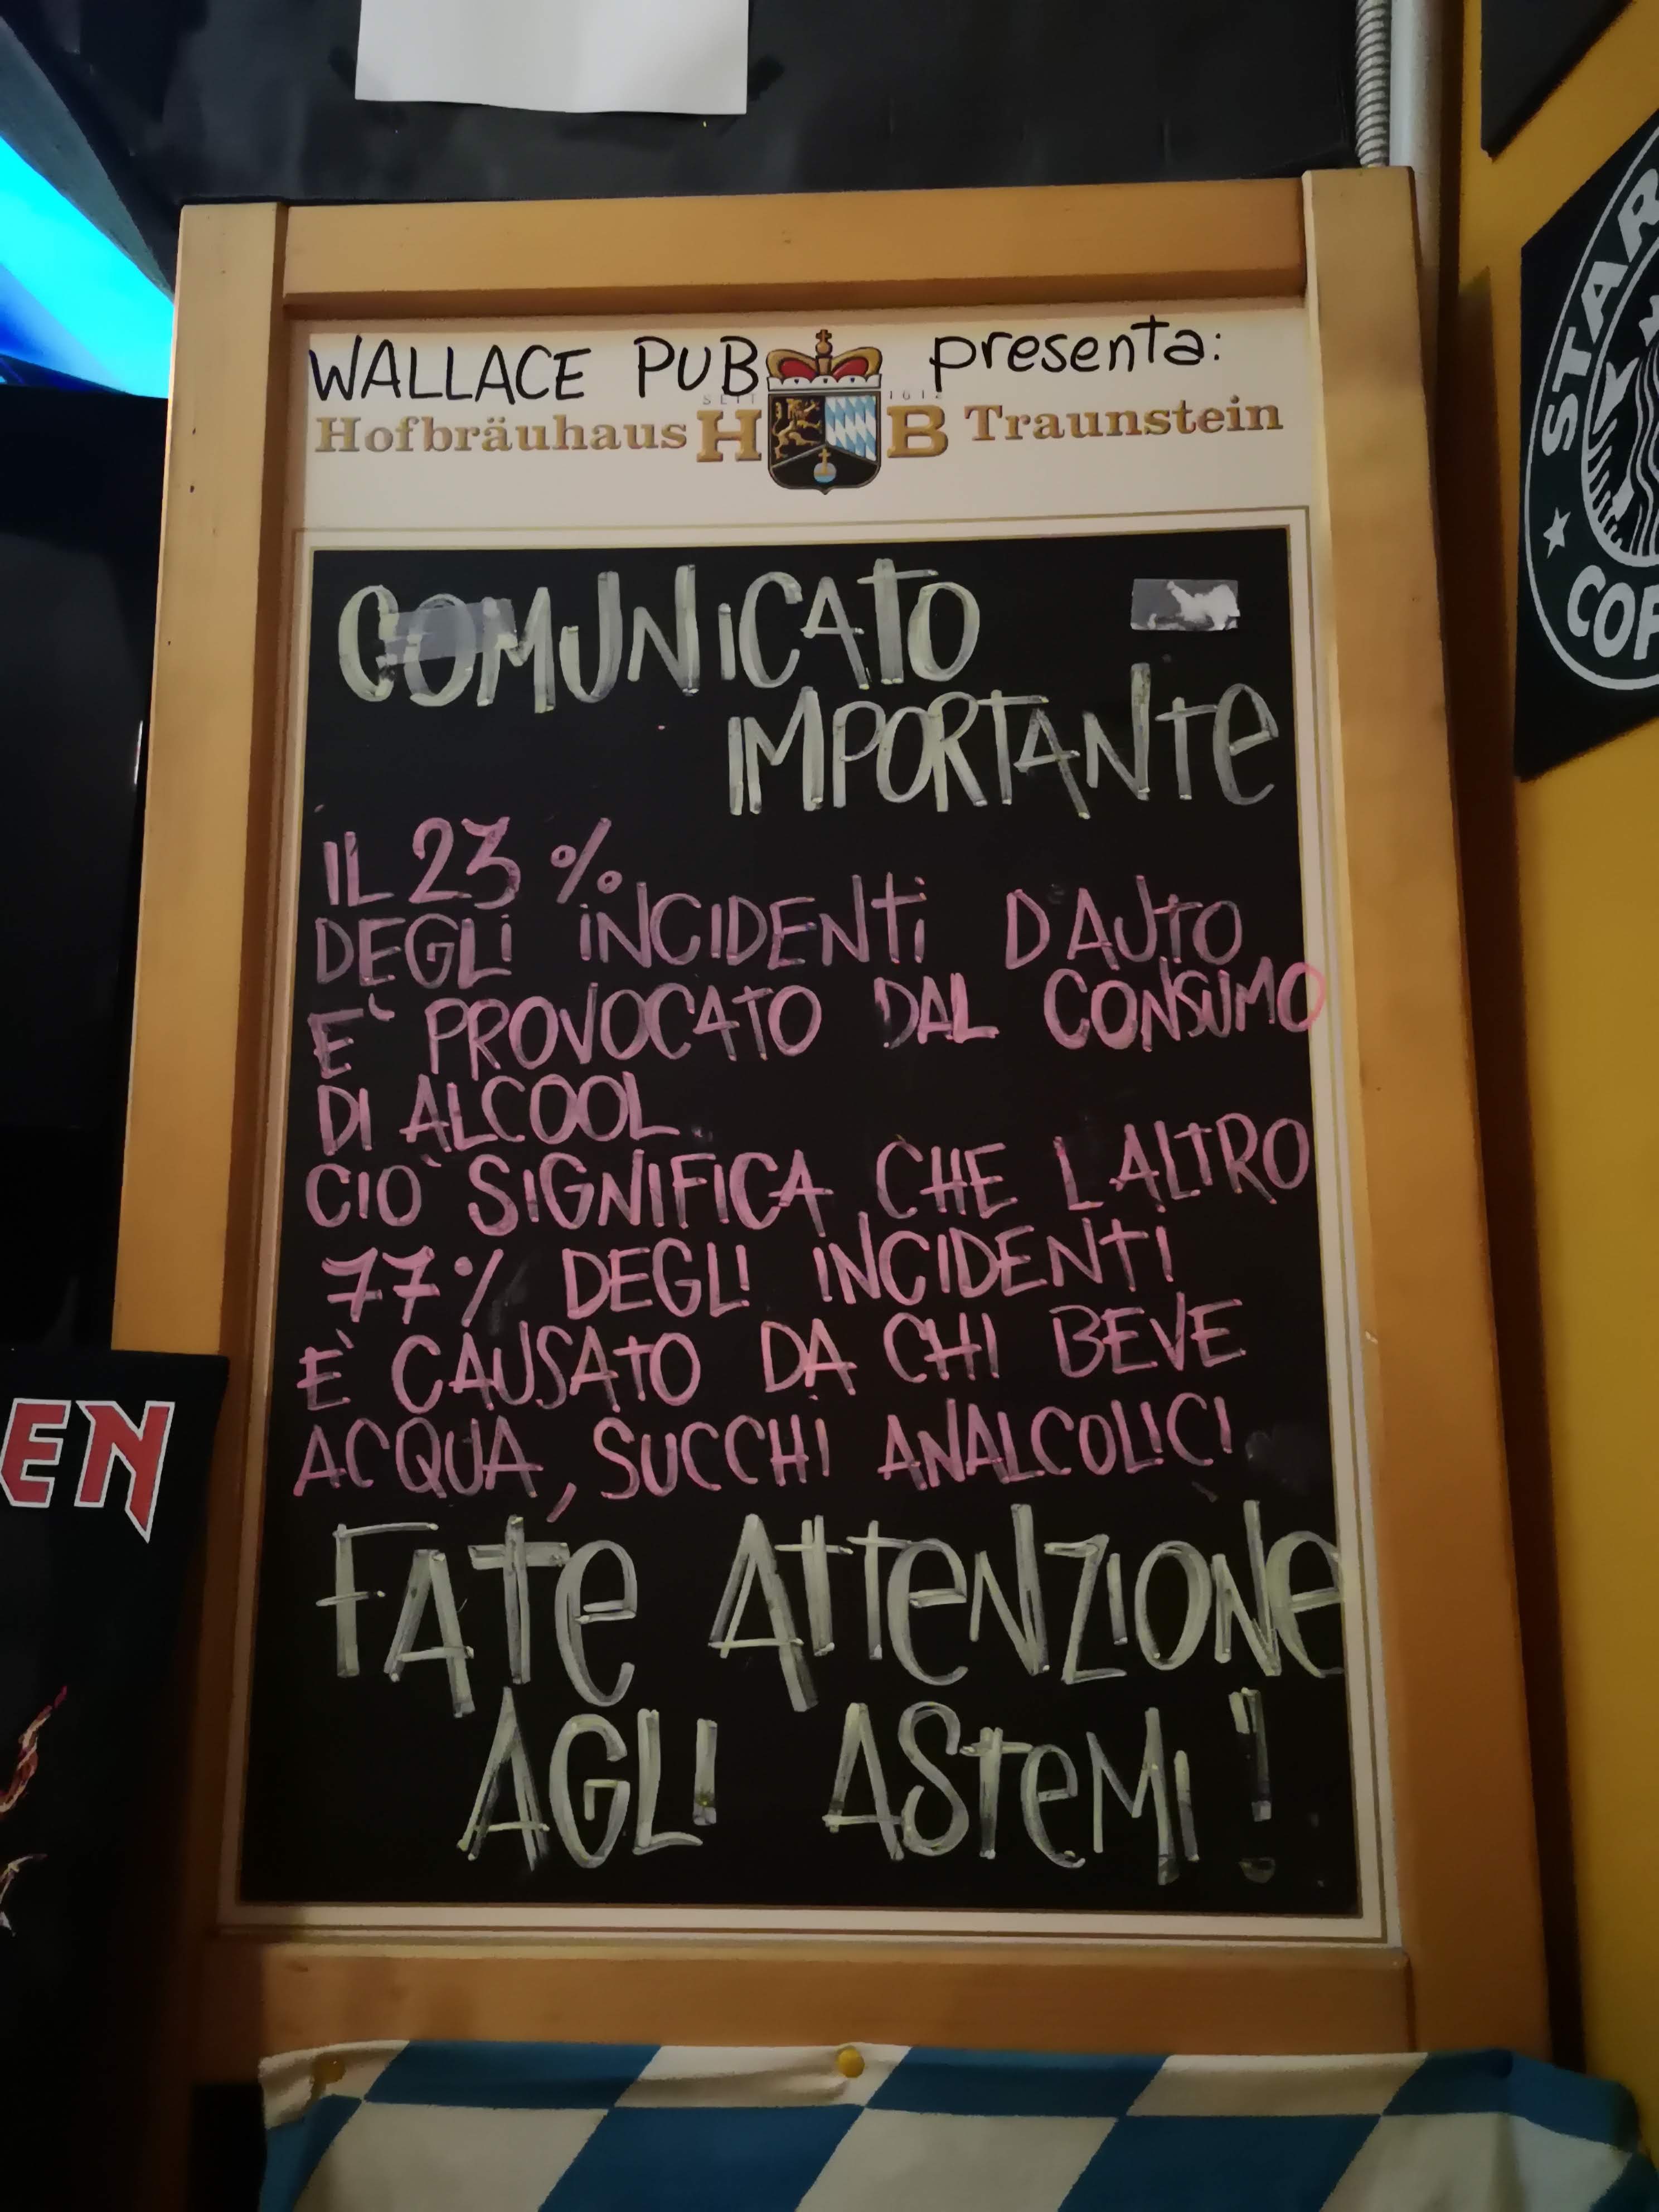 WALLACE PUB presenta:
SEIT 1612
Hofbräuhaus HB Traunstein
COMUNiCATO
IMPORTANTe
IL 23 %
DEGLi iNCIDENTi D AUTO
E` PROVOCATO DAL CONSUMO
DI ALCOOL
CIO` SIGNIFICA CHE L ALTRO
77% DEGLI INCIDENTI
E` CAUSATO DA CHI BEVE
ACQUA, SUCCHI ANALCOLICI
FATe ATTeNZIONe
AGLI ASTeMI!
STAR
COF
EN